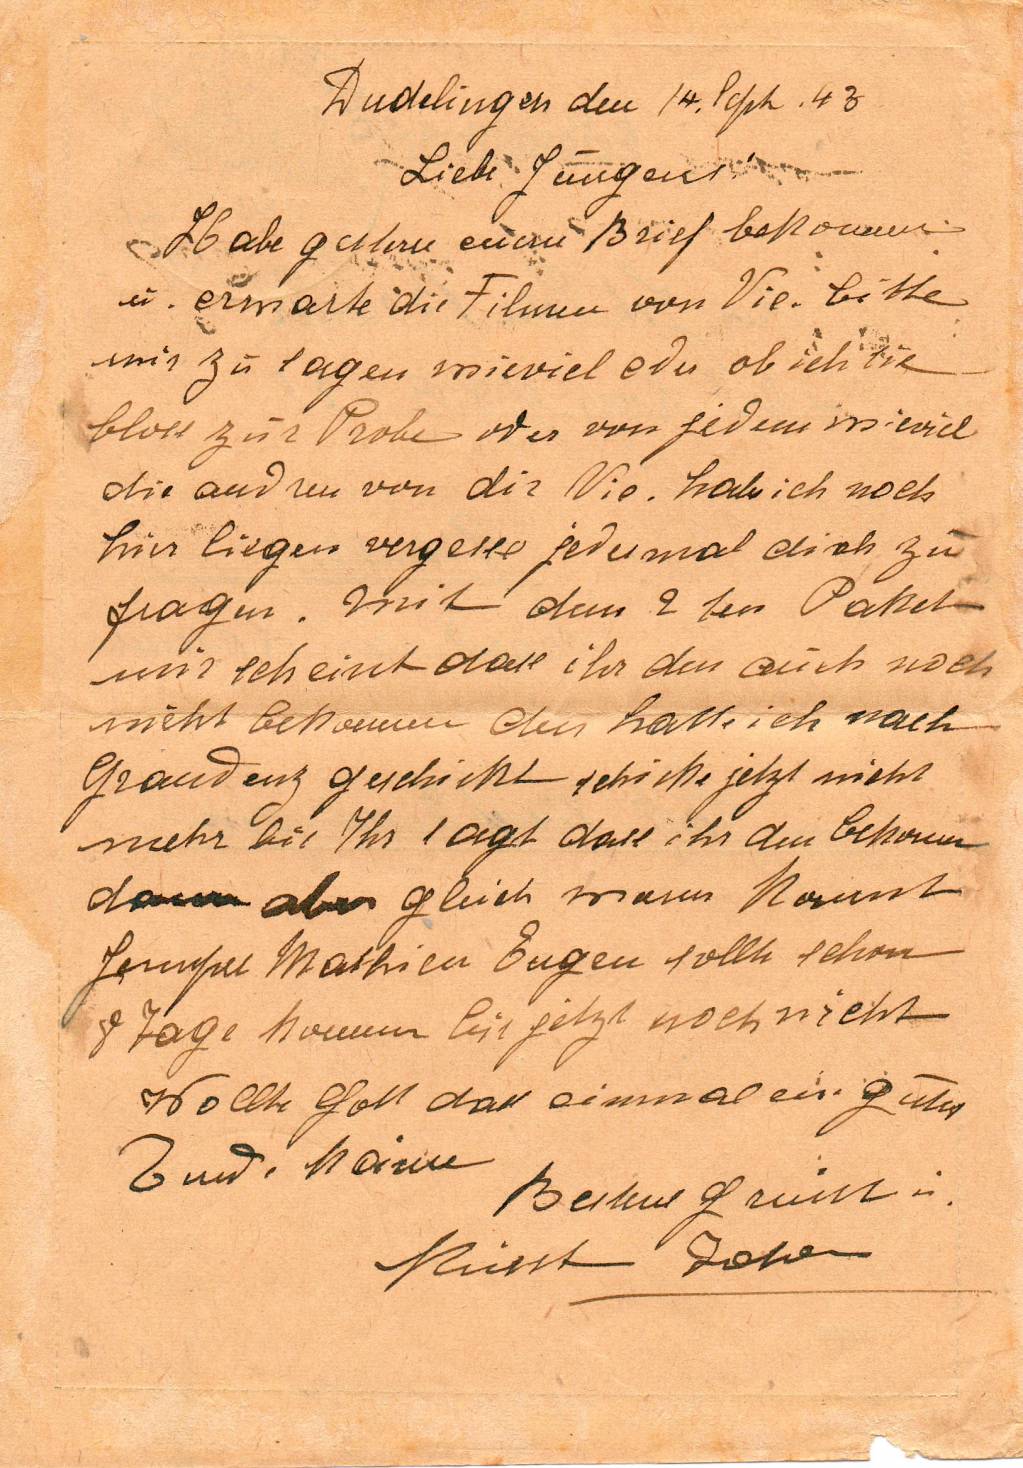 Dudelingen den 14. Sept. 43
Liebe Jungens!
Habe gestern euern Brief bekommen
u. erwarte die Filmen von Vic. bitte
mir zu sagen wieviel oder ob ich sie
bloss zur Probe oder von jedem wieviel
die andren von dir Vic. hab ich noch
hier liegen vergesse jedesmal dich zu
fragen. Mit dem 2ten Paket
mir scheint dass ihr den auch noch
nicht bekommen den hatte ich nach
Graudenz geschickt schicke jetzt nicht
mehr bis Ihr sagt dass ihr den bekommen
dann aber gleich wann kommt
Mathieu Eugen sollte schon
8 Tage kommen bis jetzt noch nicht
Wollte Gott dass einmal ein gutes
Ende käme
Bestens grüsst u.
Küsst